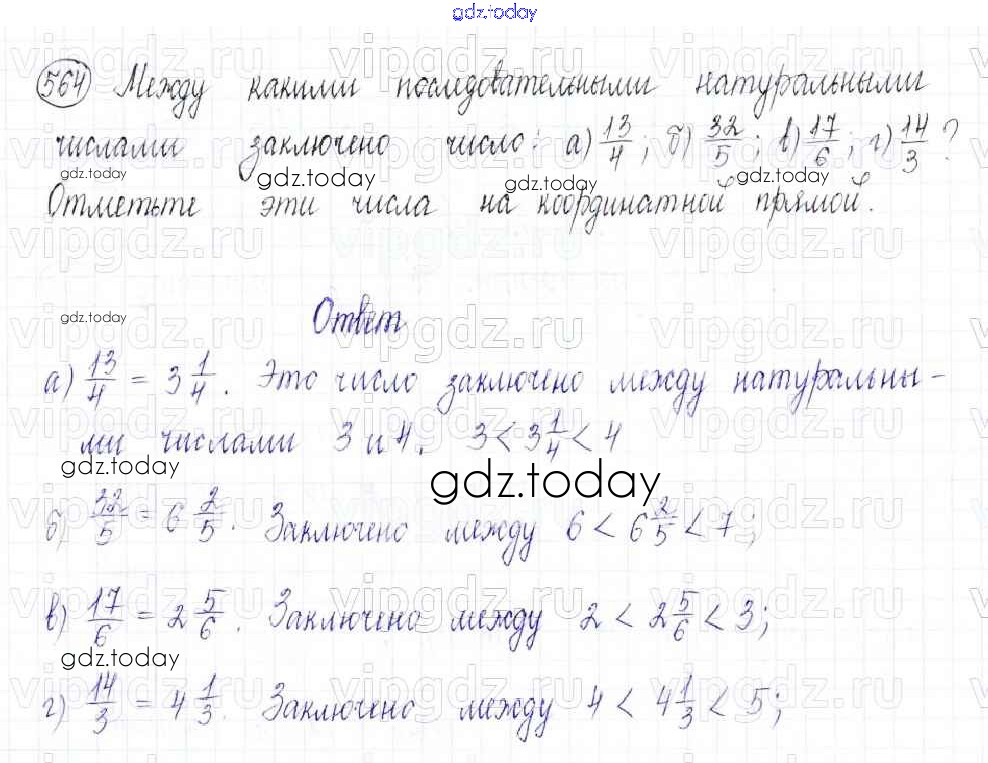 gdz.today
564 Между какими последовательными натуральными
числами заключено число: а) 13/4; б) 32/5; в) 17/6; г) 14/3?
gdz.today gdz.today gdz.today
Отметьте эти числа на координатной прямой.
gdz.today
Ответ
а) 13/4 = 3 1/4. Это число заключено между натуральны-
ми числами 3 и 4. 3 < 3 1/4 < 4
gdz.today gdz.today
б) 32/5 = 6 2/5. Заключено между 6 < 6 2/5 < 7;
в) 17/6 = 2 5/6. Заключено между 2 < 2 5/6 < 3;
gdz.today
г) 14/3 = 4 1/3. Заключено между 4 < 4 1/3 < 5;